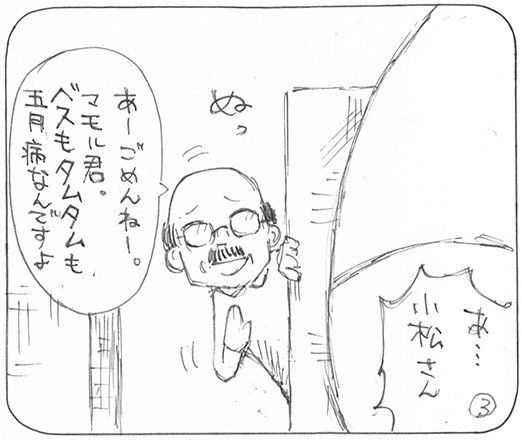 あ…
小松さん
ぬっ
あーごめんねー。
マモル君。
ベスもタムタムも
五月病なんですよ
3